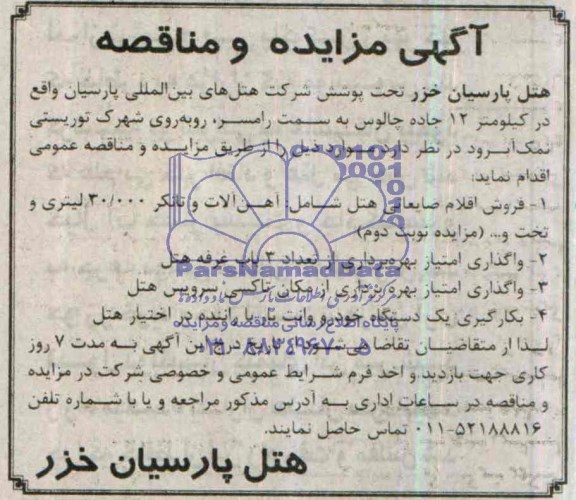 آگهی مزایده و مناقصه
هتل پارسیان خزر تحت پوشش شرکت هتل‌های بین‌المللی پارسیان واقع
در کیلومتر ۱۲ جاده چالوس به سمت رامسر، روبه‌روی شهرک توریستی
نمک‌آبرود در نظر دارد موارد ذیل را از طریق مزایده و مناقصه عمومی
اقدام نماید:
۱- فروش اقلام ضایعاتی هتل شامل: آهن‌آلات و تانکر ۳۰/۰۰۰ لیتری و
تخت و... (مزایده نوبت دوم)
۲- واگذاری امتیاز بهره‌برداری از تعداد ۳ باب غرفه هتل
ParsNamadData
۳- واگذاری امتیاز بهره‌برداری از مکان تاکسی سرویس هتل
۴- بکارگیری یک دستگاه خودرو وانت بار با راننده در اختیار هتل
پایگاه اطلاع رسانی مناقصه و مزایده
لذا از متقاضیان تقاضا می‌شود از تاریخ درج این آگهی به مدت ۷ روز
کاری جهت بازدید و اخذ فرم شرایط عمومی و خصوصی شرکت در مزایده
و مناقصه در ساعات اداری به آدرس مذکور مراجعه و یا با شماره تلفن
۰۱۱-۵۲۱۸۸۸۱۶ تماس حاصل نمایند.
هتل پارسیان خزر